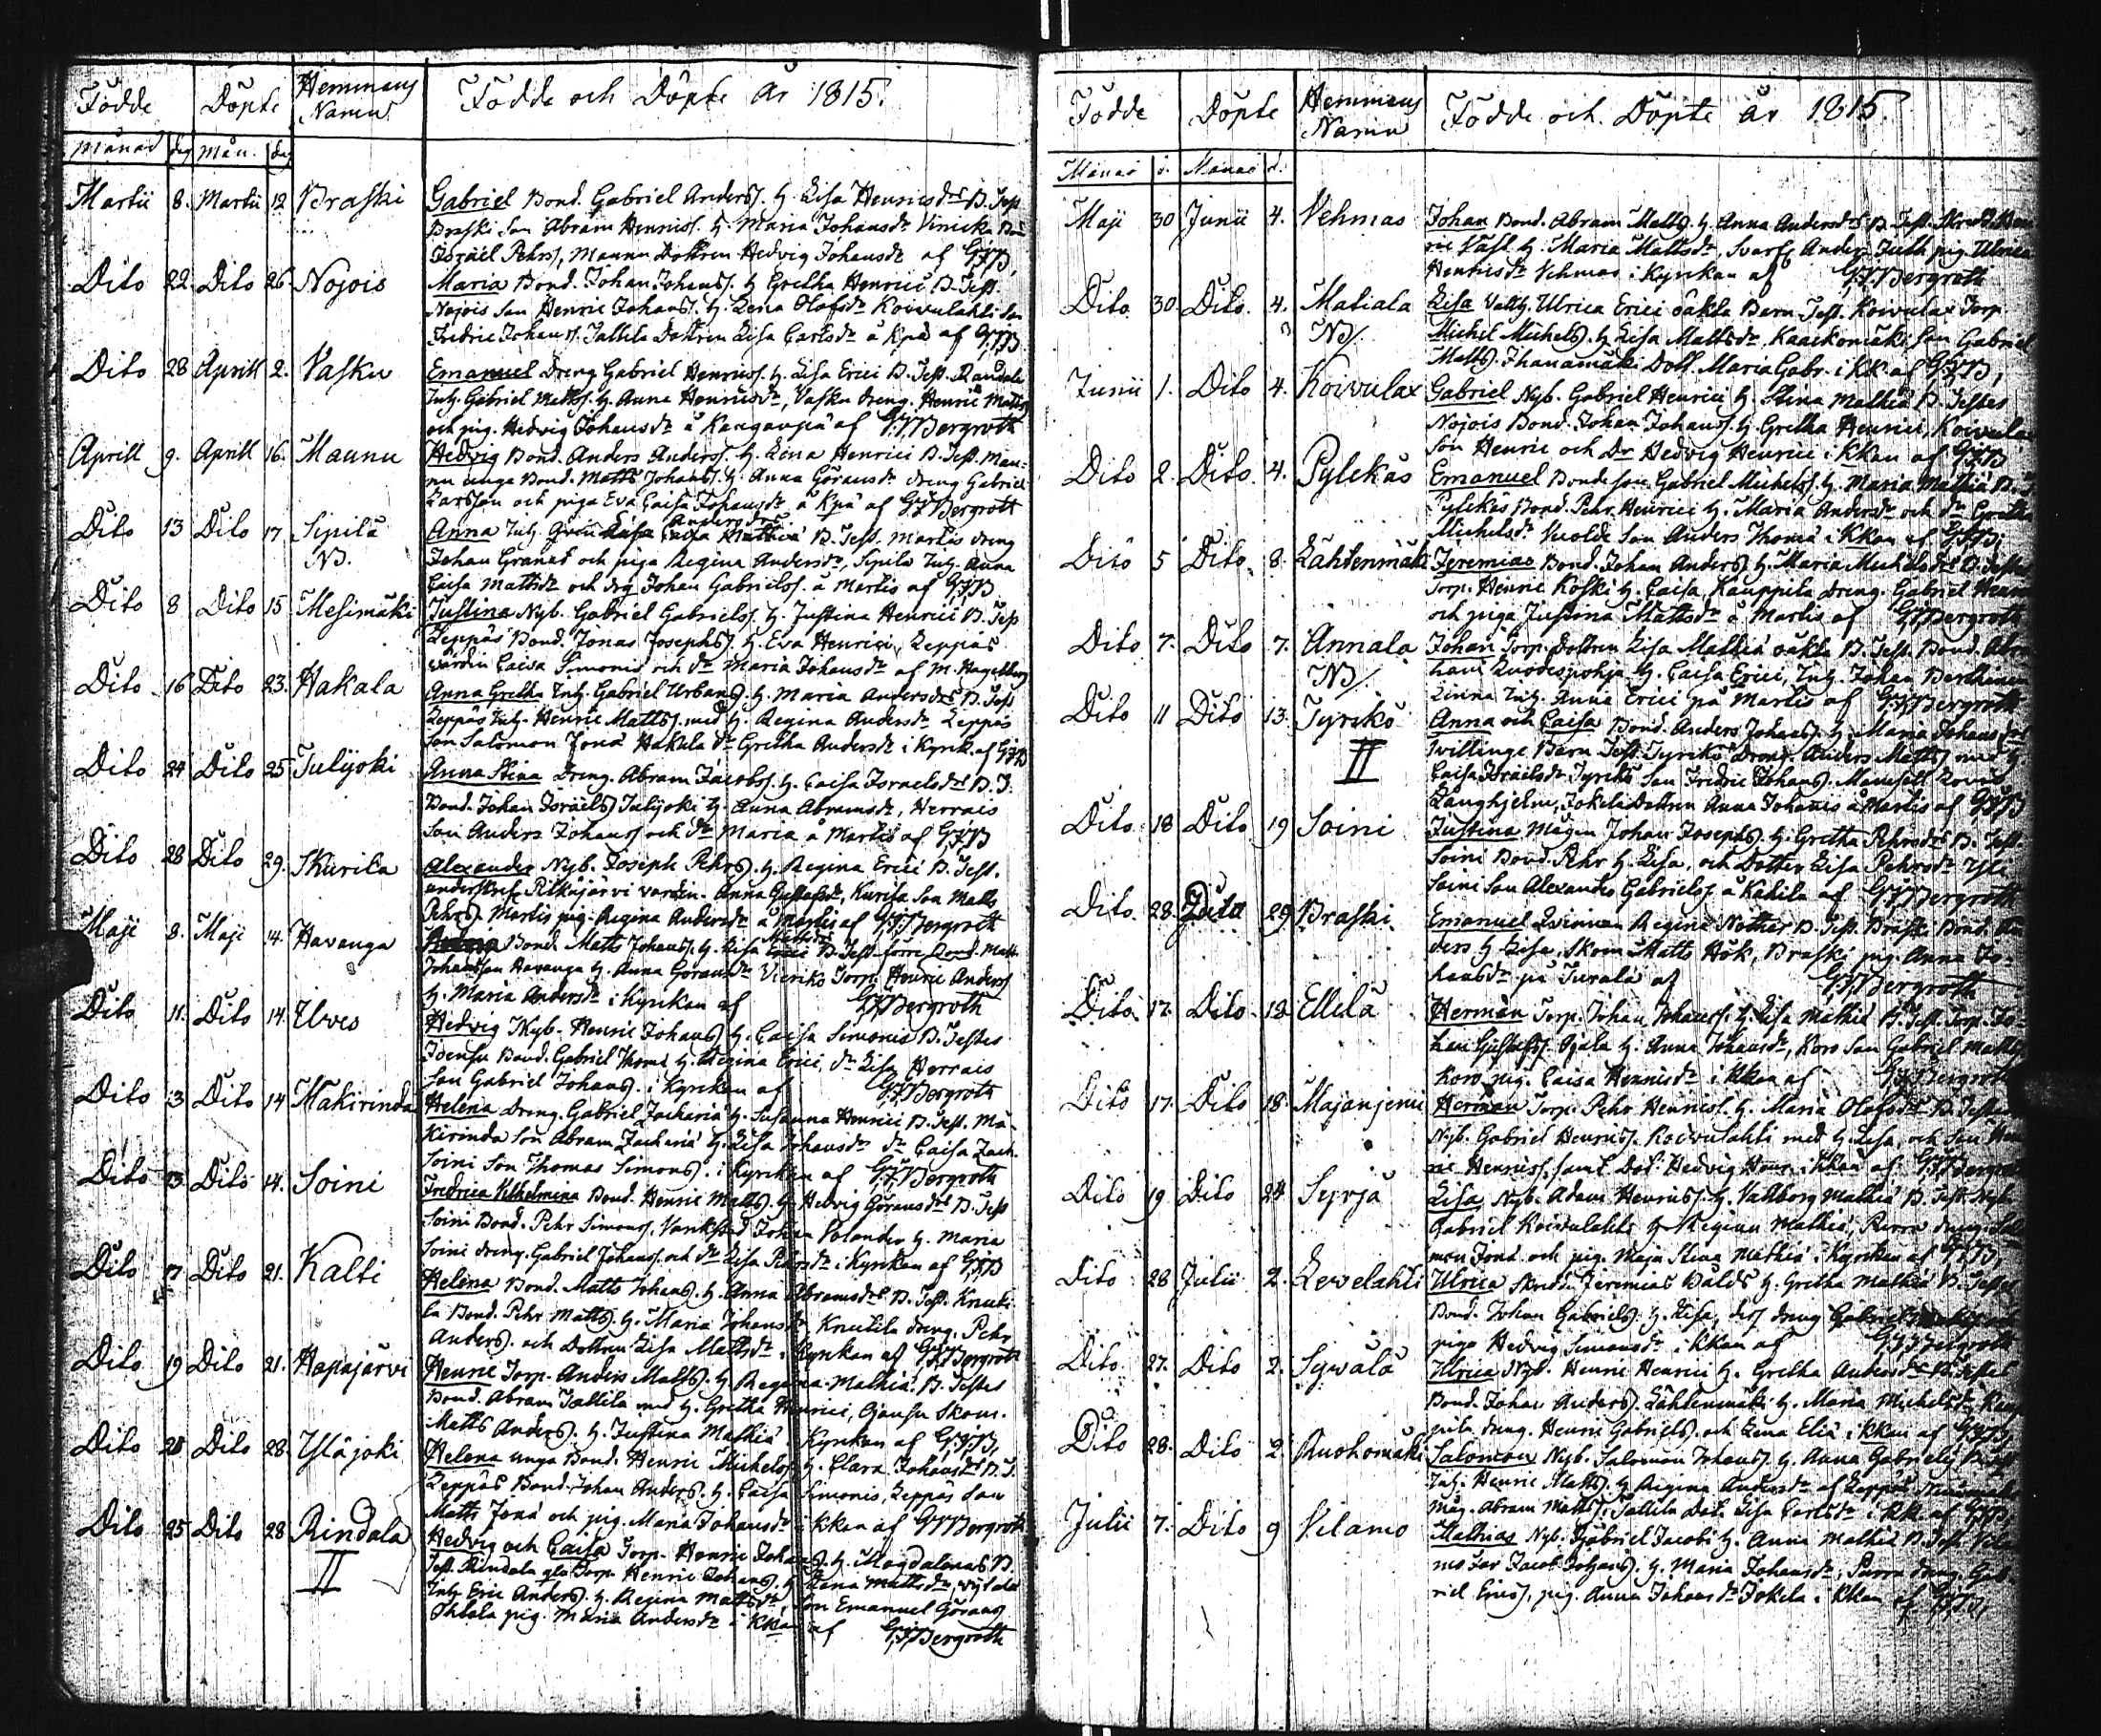 Födde Döpte Hemmans Namn Födde och Döpte År 1815.
Månad dag Mån. dag
Martii 8. Martii 12 Braski Gabriel Bond. Gabriel Anders. H. Lisa Henricsdr B. Test.
Braski Son Abram Henrics. H. Maria Johansdr
Israël Pehrs, Maunu Dottren Hedvig Johansdr af GFB
Dito 22. Dito 26. Nojois Maria Bond. Johan Johans. H. Gretha Henrici B. Test.
Nojois Son Henric Johans. H. Lena Olofsdr Koivulahti Son
Fredric Johans. Tattila Dottren Lisa Carlsdr å Kpå af GFB
Dito 28 Aprill 2. Vasku Emanuel Dreng Gabriel Henrics. H. Lisa Erici B. Test.
Inh. Gabriel Matts. H. Anna Henricsdr, Vasku dreng. Henric Matts
och pig. Hedvig Johansdr å af GFBergroth
Aprill 9. Aprill 16. Maunu Hedvig Bond. Anders Anders. H. Lena Henrici B. Test. Mau-
nu unga Bond. Matts Johans. H. Anna Göransdr dreng Gabriel
Larsson och piga Eva Caisa Johansdr å Kpå af GFBergroth
Dito 13 Dito 17 Sipilä Anna Inh. Caisa B. Test. Martis dreng
NB. Johan Granat och piga Regina Andersdr, Sipilä Inh. Anna
Caisa Mattsdr och drg Johan Gabriels. å Martis af GFB
Dito 8 Dito 15 Mesimäki Justina Nyb. Gabriel Gabriels. H. Justina Henrici B. Test
Leppäs Bond. Jonas Josephs. H. Eva Henrici, Leppäs
värdin Caisa Simonis och dr Maria Johansdr af M. Hagelberg
Dito 16 Dito 23. Hakala Anna Gretha Inh. Gabriel Urbans. H. Maria Andersdr B. Test
Leppäs Inh. Henric Matts. med H. Regina Andersdr Leppäs
Son Salomon Jona Hakala dr Gretha Andersdr i Kyrk. af GFB
Dito 24 Dito 25 Julijoki Anna Stina Dreng. Abram Jacobs. H. Caisa Israelsdr B. T.
Bond. Johan Israëls. Julijoki H. Anna Abramsdr, Herrais
Son Anders Johans och dr Maria å Martis af GFB
Dito 28 Dito 29. Skurila Alexander Nyb. Joseph Pehrs. H. Regina Erici B. Test.
Pitkäjärvi värdin. Anna Gustafsdr, Son Matts
Pehrs. Martis pig. Regina Andersdr å Martis af GFBergroth
Maji 8. Maji 14. Havanga Bond. Matts Johans. H. Lisa B. Test. förre Bond. Matts
Johansson Havanga H. Anna Göransdr Torp. Henric Anders
H. Maria Andersdr i Kyrckan af GFBergroth
Dito 11. Dito 14. Ilves Hedvig Nyb. Henric Johans. H. Caisa Simonis B. Testes
Joensu Bond. Gabriel Thomæ H. Regina Erici, dr Lisa Herrais
Son Gabriel Johans. i Kyrckan af GFBergroth
Dito 13 Dito 14 Mäkirinda Helena Dreng. Gabriel Zachariæ H. Susanna Henrici B. Test. Mä-
kirinda Son Abram Zachariæ H. Lisa Johansdr dr Caisa Zach.
Soini Son Thomas Simons. i Kyrckan af GFBergroth
Dito 13 Dito 14. Soini Fredrica Vilhelmina Bond. Henric Matts. H. Hedvig Göransdr B. Test
Soini Bond. Pehr Simons. Johan Polander H. Maria
Soini dreng. Gabriel Johans. och dr Lisa Pehrsdr i Kyrckan af GFB
Dito 17 Dito 21. Kalti Helena Bond. Matts Johans. H. Anna Abramsdr B. Test. Knuti-
la Bond. Pehr Matts. H. Maria Johansdr, Knutila dreng. Pehr
Anders. och Dottren Lisa Mattsdr i Kyrckan af GFBergroth
Dito 19 Dito 21. Hapajärvi Henric Torp. Anders Matts. H. Regina Mathiæ B. Testes
Bond. Abram Tattila med H. Gretha Henrici, Ojansu Skom.
Matts Anders. H. Justina Mathiæ i Kyrckan af GFB.
Dito 25 Dito 28. Yläjoki Helena unga Bond. Henric Michels. H. Clara Johansdr B. T.
Leppäs Bond. Johan Anders. H. Caisa Simonis, Leppäs Son
Matts Jona och pig. Maria Johansdr i Kkan af GFBergroth
Dito 25 Dito 28 Rindala Hedvig och Caisa Torp. Henric Johans. H. Magdalena B.
II Test. Rindala Torp. Henric Johans. H. Mattsdr,
Inh Eric Anders. H. Regina Mattsdr, Son Emanuel Görans
pig. Maria Andersdr i Kkan af GFBergroth
Födde Döpte Hemmans Namn Födde och Döpte år 1815.
Månad d. Månad d.
Maji 30 Junii 4. Vehmas Johan Bond. Abram Matts. H. Anna Andersdr B. Test.
H. Maria Mattsdr, Anders pig. Ulrica
Henricsdr Vehmas i Kyrckan af GFBergroth
Dito 30. Dito. 4. Matiala Lisa Ulrica Erici oäkta Barn Test. Koivulax Torp.
NB. Michel Michels. H. Lisa Mattsdr Kaackomäki Son Gabriel
Matts. Ihanamäki Dott. Maria Gabr. i KK af GFB,
Junii 1. Dito 4. Koivulax Gabriel Nyb. Gabriel Henrici H. Stina Mathiæ B. Testes
Nojois Bond. Johan Johans. H. Gretha Henrici, Koivula
Son Henric och Dr Hedvig Henrici i Kkan af GFB
Dito 2. Dito. 4. Pylckäs Emanuel Bonde Son Gabriel Michels. H. Maria Mathiæ B. T
Pylckäs Bond. Pehr Henrici H. Maria Andersdr och dr Gretha
Michelsdr Son Anders Thomæ i Kkan af GFB,
Dito 5 Dito. 8. Lähtenmäki Jeremias Bond. Johan Anders. H. Maria Michelsdr B. Test
Torp. Henric Koski H. Caisa, Kauppila dreng. Gabriel
och piga Justina Mattsdr å Martis af GFBergroth
Dito 7. Dito 7. Annala Johan Torp. Dottren Lisa Mathiæ oäkta B. Test. Bond. Abra
NB. ham H. Caisa Erici, Inh. Johan
Inh. Anna Erici på Martis af GFBergroth
Dito 11 Dito 13. Tyriskö Anna och Caisa Bond. Anders Johans. H. Maria Johansdr
II Twillinge Barn Test. Dreng. Anders Matts. med H
Caisa Israëlsdr Son Fredric Johans.
Långhjelm, Jokela Dottren Anna Johannis å Martis af GFB
Dito. 18 Dito 19 Soini Justina Mågen Johan Josephs. H. Gretha Pehrsdr B. Test.
Soini Bond. Pehr H. Lisa, och Dotter Lisa Pehrsdr
Soini Son Alexander Gabriels. å Kakila af GFBergroth
Dito. 28. Dito 29 Braski Emanuel Qvinnan Regina B. Test. Braski Bond. An
ders H. Lisa, Skom Matts Hök, Braski pig. Anna Jo-
hansdr på af GFBergroth
Dito. 17. Dito. 18 Ellilä Herman Torp. Johan Johans. H. Lisa Mathiæ B. Test. Torp. Jo-
han Gustafs. Ojala H. Anna Johansdr, Koro Son Gabriel Matts
Koro pig. Caisa Henricsdr i Kkan af GFBergroth
Dito 17. Dito 18. Majanjemi Herman Torp. Pehr Henrics. H. Maria Olofsdr B. Testes
Nyb. Gabriel Henrics. Koivulahti med H. Lisa, och Son Hen
ric Henrics. samt Dot. Hedvig Henr. i Kkan af GFBergroth
Dito 19. Dito 24 Syrjä Lisa Nyb. Adam Henrics. H. Vallborg Mathiæ B. Test. Nyb.
Gabriel Koivulahti H. Regina Mathiæ, dreng. Salo
mon Jonæ och pig. Maja Stina Mathiæ i Kyrckan af GFB,
Dito 28 Julii 2. Levelahti Ulrica Jeremias H. Gretha Mathiæ B. Testes
Bond. Johan Gabriels. H. Lisa, dess dreng Gabriel
piga Hedvig Simonsdr i Kkan af GFBergroth
Dito 27. Dito 2. Sywälä Ulrica Nyb. Henric Henrici H. Gretha Andersdr B. Testes
Bond. Johan Anders. Lähtenmäki H. Maria Michelsdr
dreng. Henric Gabriels. och Lena Eliæ i Kkan af GFB,
Dito 28. Dito 2. Ruohomäki Salomon Nyb. Salomon Johans. H. Anna Gabrielis B. Test
Inh. Henric Matts. H. Regina Andersdr af Leppäs,
Måg. Abram Matts. Tattila Dot. Lisa Carlsdr i KK. af GFB,
Julii 7. Dito 9 Vilamo Mathias Nyb. Gabriel Jacobi H. Anna Mathiæ B. Test. Vila
mo Far Jacob Johans. H. Maria Johansdr, Purra dreng. Gab
riel Erics, pig. Anna Johansdr Jokela i Kkan af GFB,